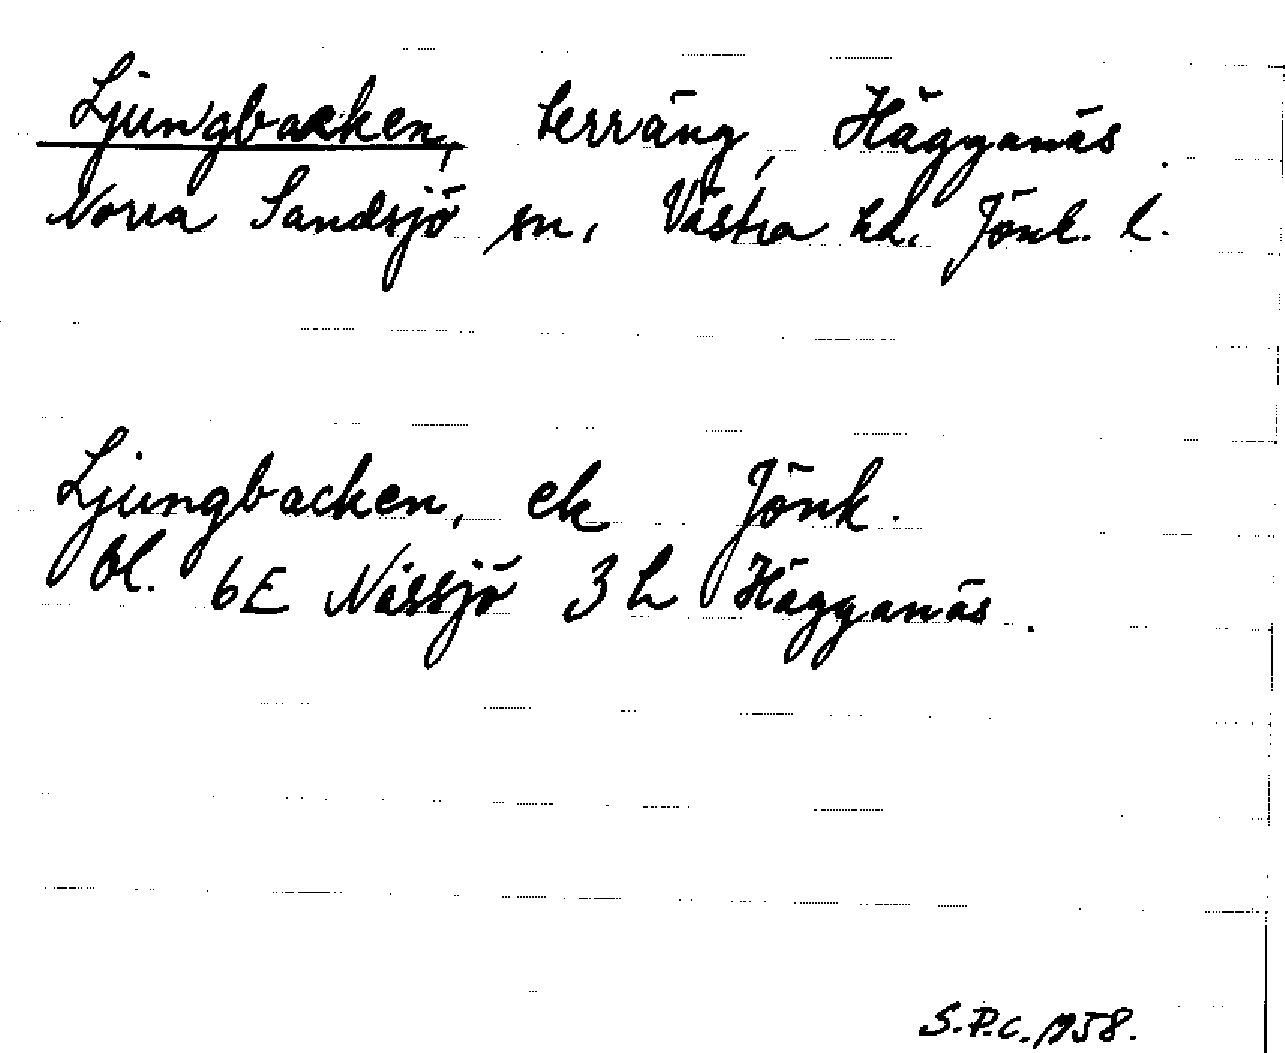 Ljungbacken, terräng, Hägganäs.
Norra Sandsjö sn, Västra hd. Jönk. l.
Ljungbacken, ek Jönk.
bl. 6E Nässjö 3h Hägganäs.
S.P.C. 1958.